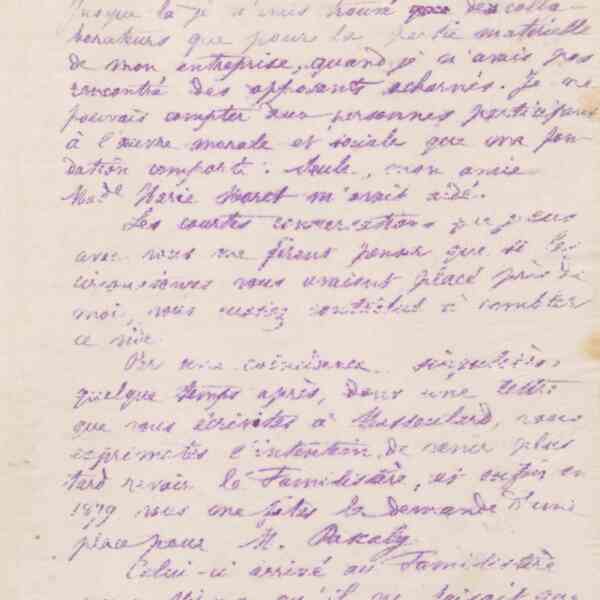 Jusque là je n'avais trouvé des colla-
borateurs que pour la partie matérielle
de mon entreprise, quand je n'avais pas
rencontré des opposants acharnés. Je ne
pouvais compter aux personnes participant
à l'œuvre morale et sociale que ma fon-
dation comporte : Seule, mon amie
Mad.le Marie Moret m'avait aidé.
Les courtes conversations que j'eus
avec vous me firent penser que si les
circonstances vous avaient placé près de
moi, vous eussiez contribué à combler
ce vide.
Par une coïncidence singulière,
quelque temps après, dans une lettre
que vous écrivites à Massoulard, vous
exprimates l'intention de venir plus
tard revoir le Familistère, et enfin en
1879 vous me fîtes la demande d'une
place pour M. Pascaly
Celui-ci arrivé au Familistère
qu'il ne faisait que